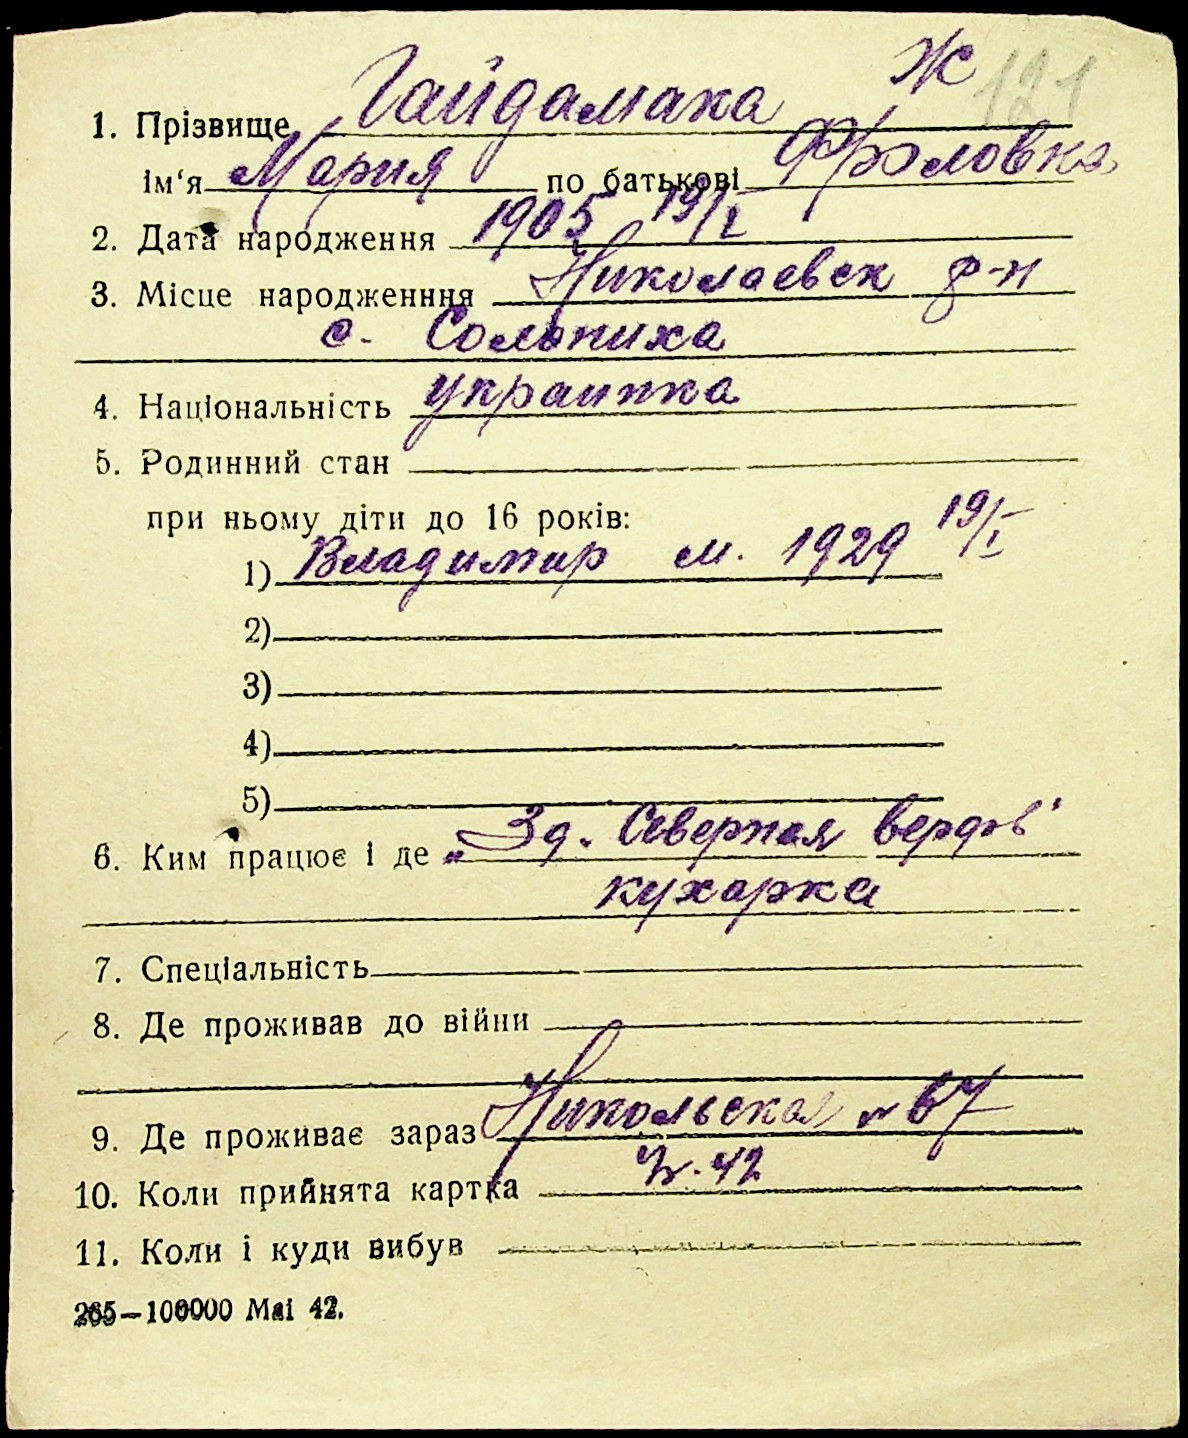 Ж 121
1. Прізвище Гайдамака
ім‘я Мария по батькові Фроловна
2. Дата народження 1905 19/I
3. Місце народженння Николаевск р-н
с. Сольпиха
4. Національність украинка
5. Родинний стан
при ньому діти до 16 років:
1) Владимир м. 1929 19/I
2)
3)
4)
5)
6. Ким працює і де „Зд. Северная верфь“
кухарка
7. Спеціальність
8. Де проживав до війни
9. Де проживає зараз Никольская № 67
10. Коли прийнята картка 42
11. Коли і куди вибув
265—100000 Маі 42.